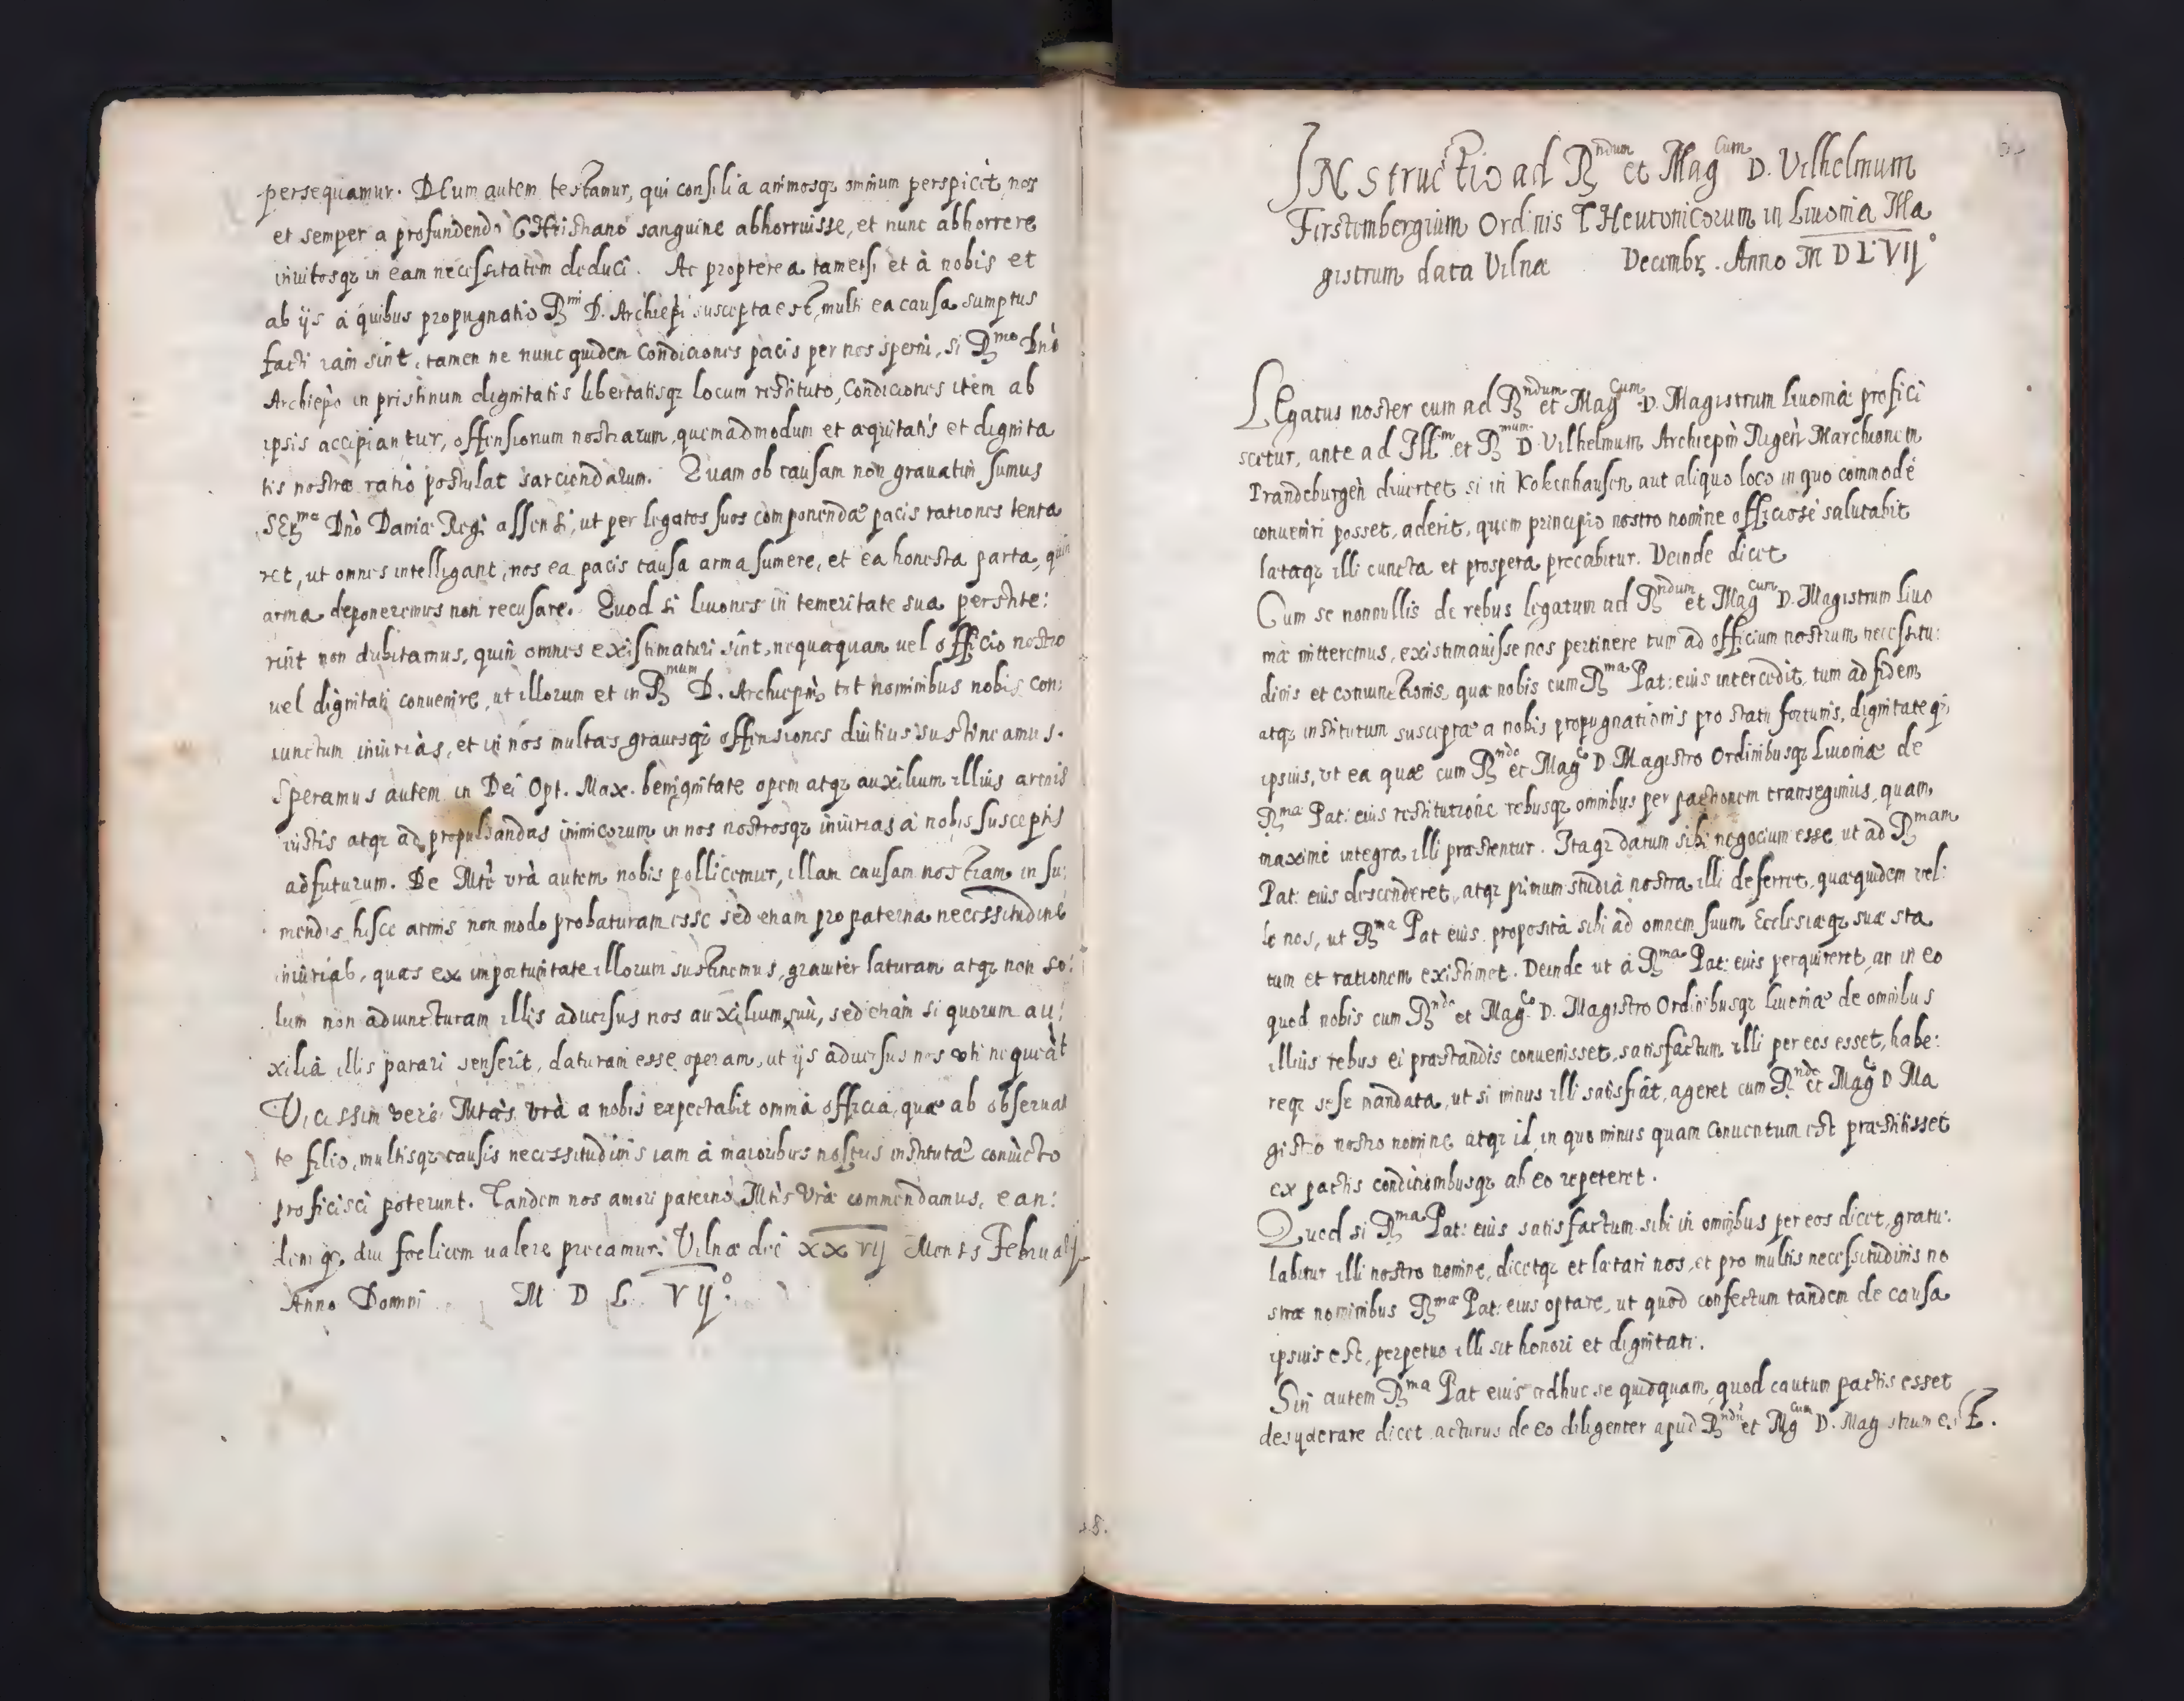 persequamur. DEum autem testamur, qui consilia animosq; omnium perspicit, nos
et semper a profundendo CHristiano sanguine abhorruisse, et nunc abhorrere
inuitosq; in eam necessitatem deduci. Ac propterea tametsi et à nobis et
ab ijs à quibus propugnatio Rmi D. Archiepi suscepta est, multi ea causa sumptus
facti iam sint, tamen ne nunc quidem Condiciones pacis per nos sperni, si Rmo Dno
Archiepo in pristinum dignitatis libertatisq; locum restituto, Condiciones item ab
ipsis accipiantur, offensionum nostrarum, quemadmodum et aequitatis et dignita
tis nostrae ratio postulat sarciendarum. Quam ob causam non grauatim sumus
SErmo Dno Daniae Regi assensi, ut per legatos suos componendae pacis rationes tenta
ret, ut omnes intelligant, nos ea pacis causa arma sumere, et ea honesta parta, quin
arma deponeremus non recusare. Quod si Liuones in temeritate sua perstite:
rint non dubitamus, quin omnes existimaturi sint, nequaquam uel officio nostro
uel dignitati conuenire, ut illorum et in Rmum D. Archiepm tot nominibus nobis con:
iunctum iniurias, et in nos multas grauesq; offensiones diutius sustineamus.
Speramus autem in Dei Opt. Max. benignitate opem atq; auxilium illius armis
iustis atq; ad propulsandas inimicorum in nos nostrosq; iniurias à nobis susceptis
adfuturum. De Mte vrà autem nobis pollicemur, illam causam nostram in su:
mendis hisce armis non modo probaturam esse sed etiam pro paterna necessitudine
iniurias, quas ex importunitate illorum sustinemus, grauiter laturam atq; non so:
lum non adiuncturam illis aduersus nos auxilium suū, sed etiam si quorum au:
xilia illis parari senserit, daturam esse operam, ut ijs aduersus nos uti nequeāt
Vicissim verò Mtas vrà a nobis expectabit omnia officia, quae ab obseruan
te filio, multisq; causis necessitudinis iam à maioribus nostris institutae coniūcto
proficisci poterunt. Tandem nos amori paterno Mtis Vrae commendamus, ean:
demq; diu foelicem ualere precamur. Vilnae die XXVIJ Mensis Februarij
Anno Domini M D L VIJ°.
INstructio ad Rndum et Magcum D. Vilhelmum
Firstembergium Ordinis THeutonicorum in Liuonia Ma
gistrum data Vilnae Decembr. Anno M D LVIJ°
LEgatus noster cum ad Rndum et Magcum D. Magistrum Liuoniae profici
scetur, ante ad Illm et Rmum D Vilhelmum Archiepm Rigeñ Marchionem
Brandeburgeñ diuertet, si in Kokenhausen aut aliquo loco in quo commodè
conueniri posset, aderit, quem principio nostro nomine officiosè salutabit
laetaq; illi cuncta et prospera precabitur. Deinde dicet
Cum se nonnullis de rebus legatum ad Rndum et Magcum D. Magistrum Liuo
niae mitteremus, existimauisse nos pertinere tum ad officium nostrum necessitu:
dinis et coniunctionis, quae nobis cum Rma Pat: eius intercedit, tum ad fidem
atq; institutum susceptae a nobis propugnationis pro statu fortunis, dignitateq;
ipsius, vt ea quae cum Rndo et Magco D Magistro Ordinibusq; Liuoniae de
Rmae Pat: eius restitutione rebusq; omnibus per pactionem transegimus, quam
maximè integra illi praestentur. Itaq; datum sibi negocium esse, ut ad Rmam
Pat: eius descenderet, atq; primum studia nostra illi deferret, quae quidem vel:
le nos, ut Rma Pat eius proposita sibi ad omnem suum Ecclesiaeq; suae sta
tum et rationem existimet. Deinde ut à Rma Pat: eius perquireret, an in eo
quod nobis cum Rndo et Magco D. Magistro Ordinibusq; Liuoniae de omnibus
illius rebus ei praestandis conuenisset, satisfactum illi per eos esset, habe:
req; sese mandata, ut si minus illi satisfiat, ageret cum Rndo et Magco D Ma
gistro nostro nomine atq; id in quo minus quam Conuentum est praestitisset
ex pactis conditionibusq; ab eo repeteret.
Quod si Rma Pat: eius satisfactum sibi in omnibus per eos dicet, gratu:
labitur illi nostro nomine, dicetq; et laetari nos, et pro multis necessitudinis no
strae nominibus Rmae Pat: eius optare, ut quod confectum tandem de causa
ipsius est, perpetuo illi sit honori et dignitati.
Sin autem Rma Pat eius adhuc se quidquam, quod cautum pactis esset
desyderare dicet acturus de eo diligenter apud Rndū et Mgcum D. Magistrum